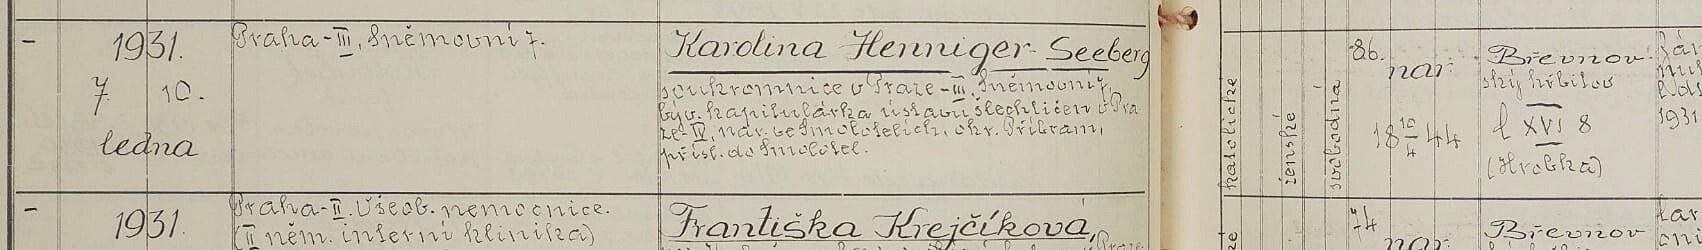 1931.
7. 10.
ledna
Praha-III, Sněmovní 7.
Karolina Henniger-Seeberg
soukromnice v Praze-III, Sněmovní 7,
býv. kapitulárka ústavu šlechtičen v Pra-
ze-IV, nar. ve Smolotelích, okr. Příbram,
přísl. do Smolotel.
katolické
ženské
svobodná
86.
nar.
18 10/4 44
Břevnov-
ský hřbitov
XVI 8
(Hrobka)
1931
1931.
Praha-II. Všeob. nemocnice.
(II něm. interní klinika)
Františka Krejčíková,
74
nar.
Břevnov